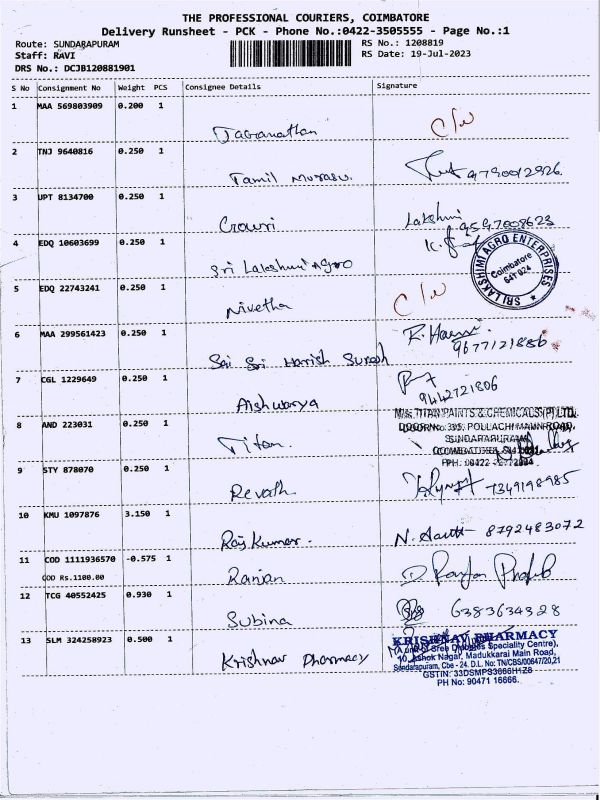 THE PROFESSIONAL COURIERS, COIMBATORE
Delivery Runsheet - PCK - Phone No.:0422-3505555 - Page No.:1
Route: SUNDARAPURAM
RS No.: 1208819
Staff: RAVI
RS Date: 19-Jul-2023
DRS No.: DCJB120881901
S No Consignment No Weight PCS Consignee Details Signature
1 MAA 569803909 0.200 1
Jaganathan C/W
2 TNJ 9640816 0.250 1
Tamil Murasu.
3 UPT 8134700 0.250 1
Gowri Lakshmi 9597009623
4 EDQ 10603699 0.250 1
Sri Lakshmi Agro
SRI LAKSHMI AGRO ENTERPRISES
Coimbatore
641 024
5 EDQ 22743241 0.250 1
Nivetha C/W
6 MAA 299561423 0.250 1
Sai Sri Harish Suresh 9677121886
7 CGL 1229649 0.250 1
Aishwarya 9442721806
8 AND 223031 0.250 1
Titan.
M/s. TITAN PAINTS & CHEMICALS (P) LTD.
DOOR No: 395, POLLACHI MAIN ROAD,
SUNDARAPURAM
9 STY 878070 0.250 1
Revath 7349198985
10 KMU 1097876 3.150 1
Raj Kumar. 8792483072
11 COD 1111936570 -0.575 1
COD Rs.1100.00
Ranjan
12 TCG 40552425 0.930 1
Subina 6383634328
13 SLM 324258923 0.500 1
Krishnav Pharmacy
KRISHNAV PHARMACY
(A unit of Sree Diabetes Speciality Centre),
10, Ashok Nagar, Madukkarai Main Road,
Sundarapuram, Cbe - 24. D.L. No: TN/CBS/00647/20,21
GSTIN: 33DSMPS3666H1Z8
PH No: 90471 16666.